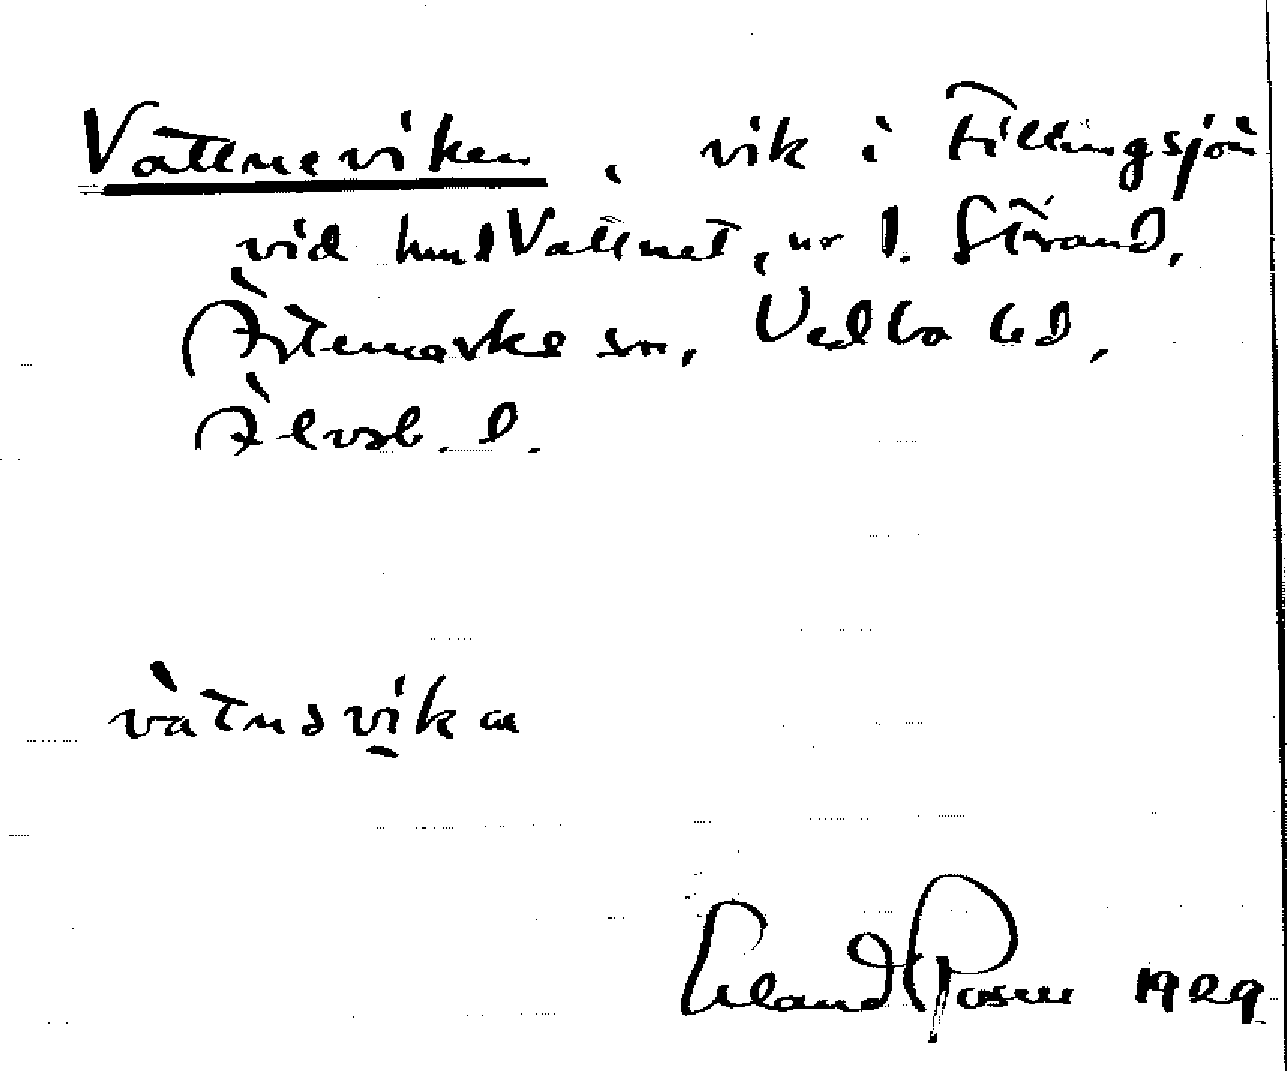 Vattneviken, vik i Tillingsjön
vid hmd Vattnet, nr 1. Strand,
Ärtemarks sn, Vedbo hd,
Älvsb. l.
vàtnsvika
Erland Rosell 1929